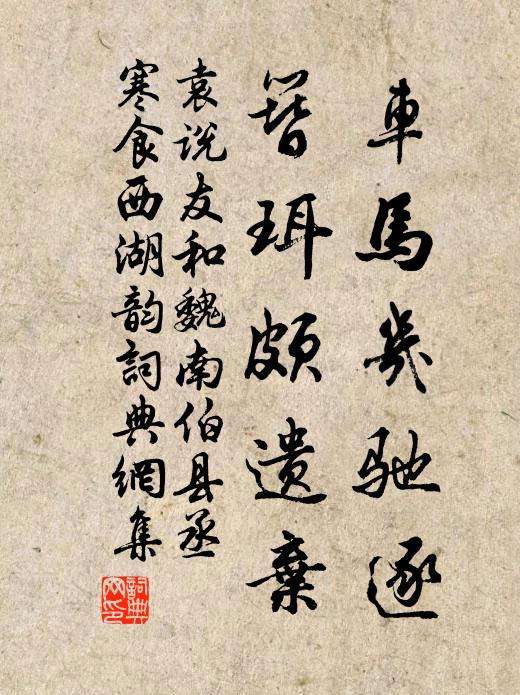 車馬幾馳逐
簪珥頗遺棄
袁说友和魏南伯县丞
寒食西湖韵詞典網集
詞典网印